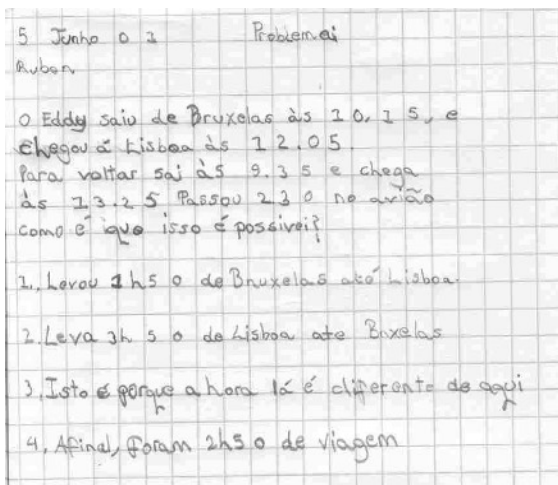 5 Junho 01 Problema
Ruben
O Eddy saiu de Bruxelas às 10.15, e
chegou a Lisboa às 12.05.
Para voltar sai às 9.35 e chega
às 13.25 Passou 230 no avião
como é que isso é possivei?
1., Levou 1h50 de Bruxelas até Lisboa.
2. Leva 3h 50 de Lisboa ate Bruxelas
3, Isto é porque a hora lá é diferente de aqui
4, Afinal, foram 2h50 de viagem